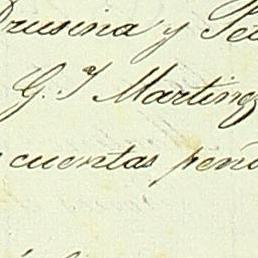 Drusina y
G. Y Martinez
cuentas pend